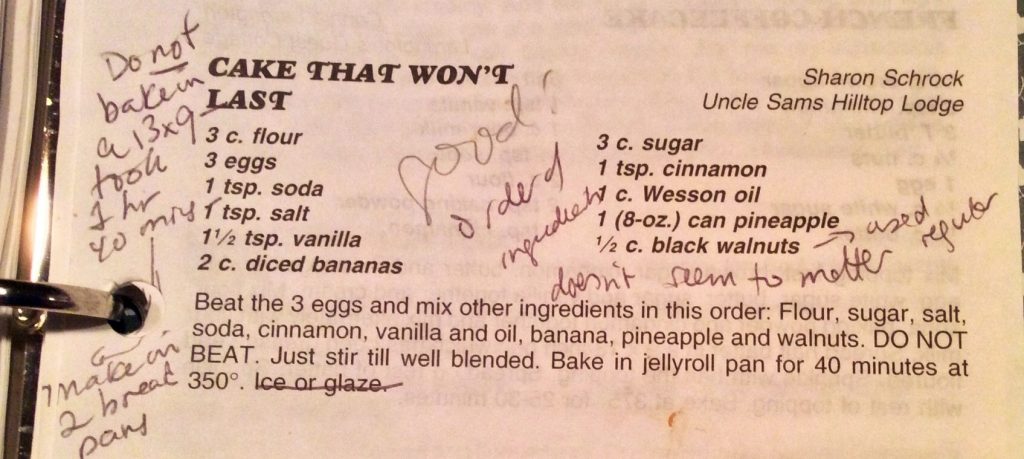 Do not
bake in
a 13x9
took
1 hr
40 mins
CAKE THAT WON'T
LAST
good!
Sharon Schrock
Uncle Sams Hilltop Lodge
3 c. flour
3 eggs
1 tsp. soda
1 tsp. salt
1½ tsp. vanilla
2 c. diced bananas
3 c. sugar
1 tsp. cinnamon
1 c. Wesson oil
1 (8-oz.) can pineapple
½ c. black walnuts → used
regular
order of
ingredients
doesn't seem to matter
Beat the 3 eggs and mix other ingredients in this order: Flour, sugar, salt,
soda, cinnamon, vanilla and oil, banana, pineapple and walnuts. DO NOT
BEAT. Just stir till well blended. Bake in jellyroll pan for 40 minutes at
350°. Ice or glaze.
make in
2 bread
pans
FRENCH COFFEECAKE
with rest of topping. Bake at 375° for 25-30 minutes.